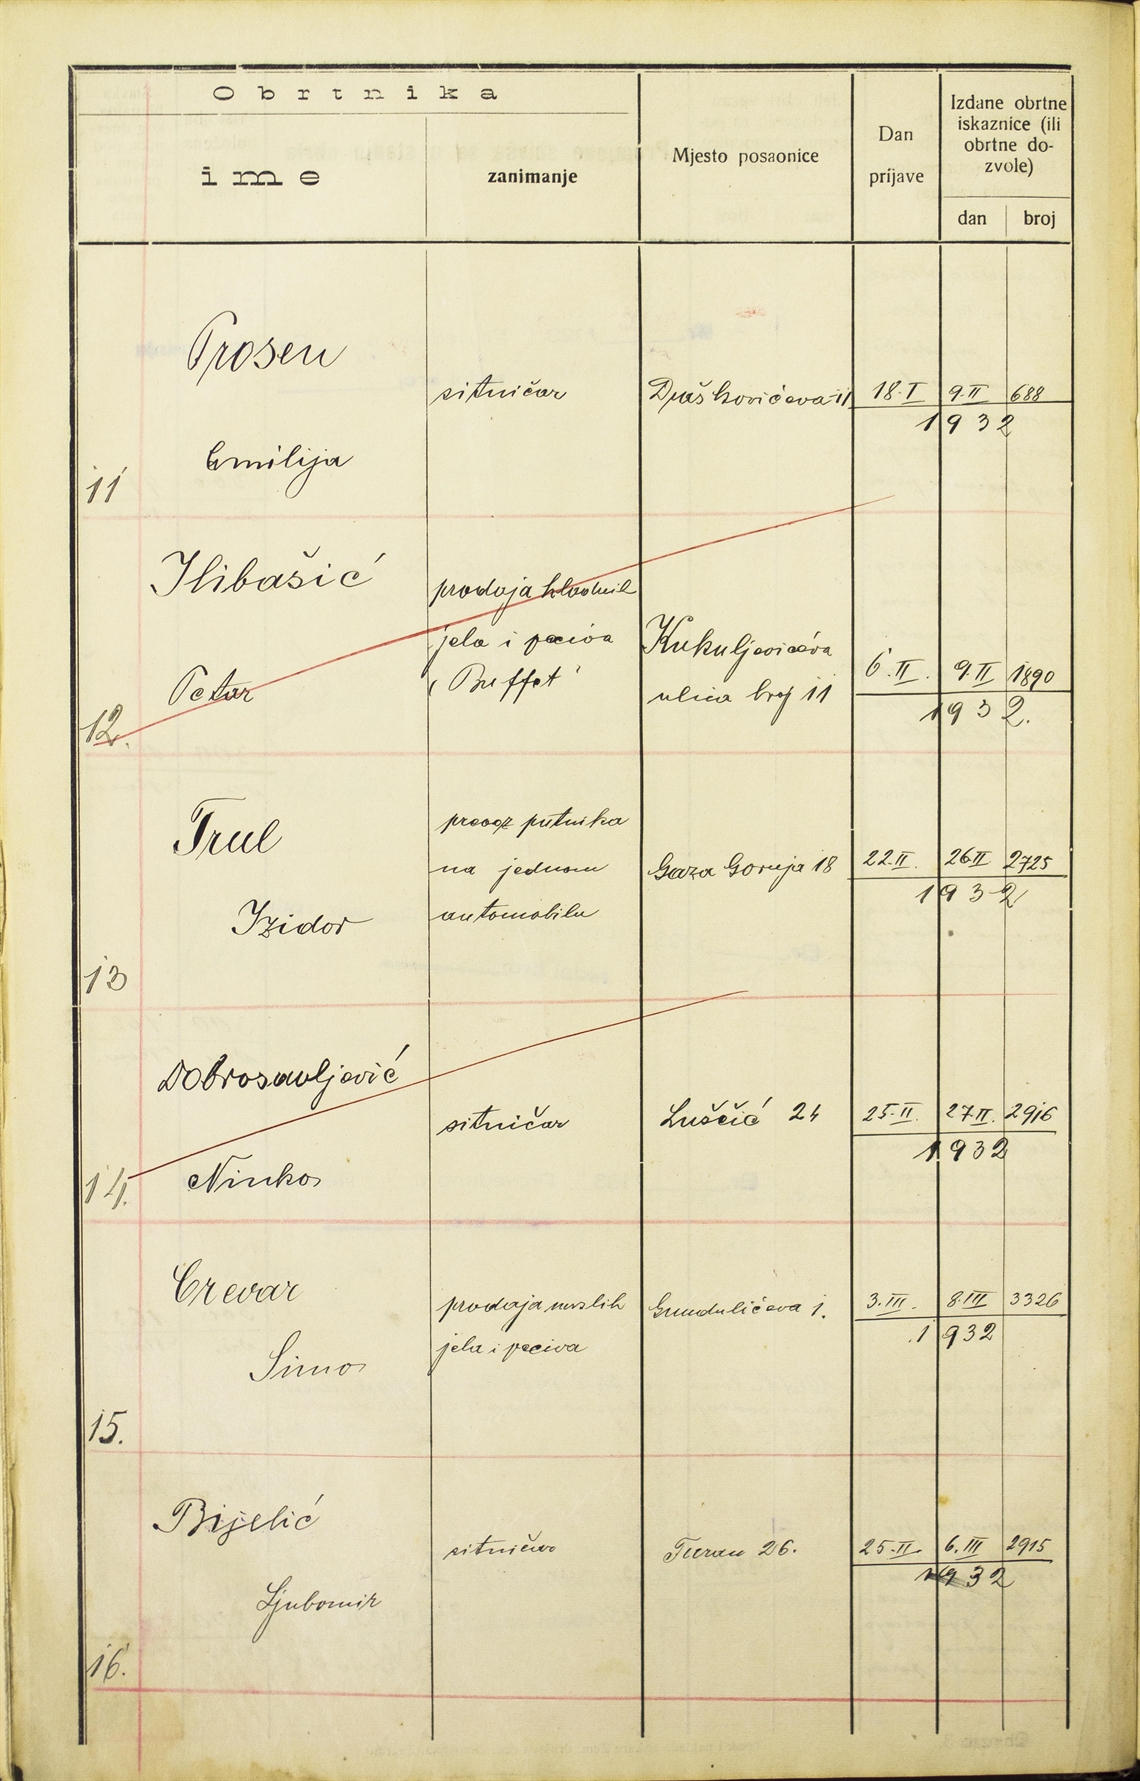 Obrtnika
ime
zanimanje
Mjesto posaonice
Dan
prijave
Izdane obrtne
iskaznice (ili
obrtne do-
zvole)
dan
broj
Prosen
sitničar
Draškovićeva 11
18.I
9.II
688
1932
Emilija
11
Ilibašić
prodaja hladnih
jela i peciva
Kukuljevićeva
6.II.
9.II
1890
Petar
"Buffet"
ulica broj 11
1932.
12.
Trul
prevoz putnika
na jednom
Gaza Gornja 18
22.II.
26II
2725
1932
Izidor
automobilu
13
Dobrosavljević
sitničar
Luščić 24
25.II.
27II.
2916
1932
Ninko
14.
Crevar
prodaja mrzlih
Gundulićeva 1.
3.III.
8.III
3326
1932
Simo
jela i peciva
15.
Bijelić
sitničar
Turan 26.
25.II.
6.III
2915
1932
Ljubomir
16.